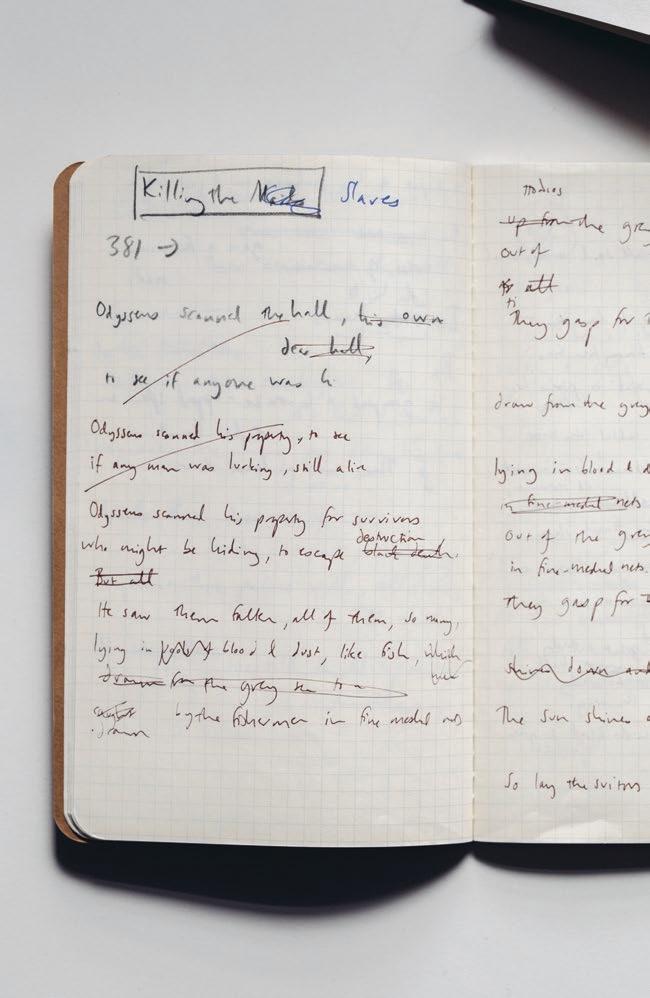 Killing the Maids Slaves
381 →
Odysseus scanned the hall, his own
dear hall,
to see if anyone was h
Odysseus scanned his property, to see
if any man was lurking, still alive
Odysseus scanned his property for survivors
destruction
who might be hiding, to escape black death.
But all
He saw them fallen, all of them, so many,
lying in pools of blood & dust, like fish, which
drawn from the grey sea to a
caught by the fishermen in fine-meshed nets
drawn
up from the grey
out of
all
They gasp for
draw from the grey
lying in blood & d
in fine-meshed nets
out of the grey
in fine-meshed nets.
They gasp for
shines down and
The sun shines
So lay the suitors